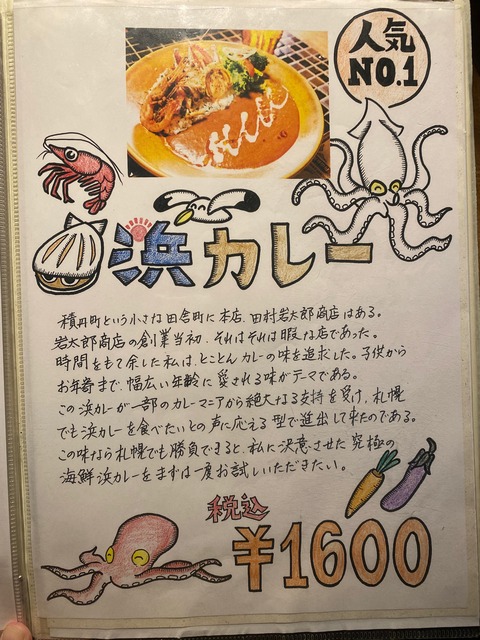 人気
NO.1
浜カレー
積丹町という小さな田舎町に本店、田村岩太郎商店はある。
岩太郎商店の創業当初、それはそれは暇な店であった。
時間をもて余した私は、とことんカレーの味を追求した。子供から
お年寄まで、幅広い年齢に愛される味がテーマである。
この浜カレーが一部のカレーマニアから絶大なる支持を受け、札幌
でも浜カレーを食べたいとの声に応える型で進出して来たのである。
この味なら札幌でも勝負できると、私に決意させた究極の
海鮮浜カレーをまずは一度お試しいただきたい。
税込
¥1600